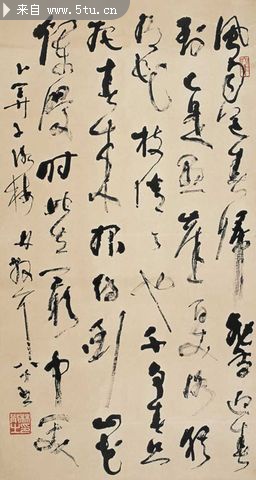 来自：www.5tu.cn
風雨送春歸飛雪迎春
到已是懸崖百丈冰猶
有花枝俏俏也不争春只
把春來報待到山花
爛漫時她在叢中笑
卜算子咏梅 林散耳